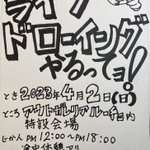 ライブ
ドローイング
やるってヨ!
とき2023年4月2日(日)
ところ アウトガレリアルーナ店内
特設会場
じかん PM 12:00〜PM 18:00
途中休憩アリ